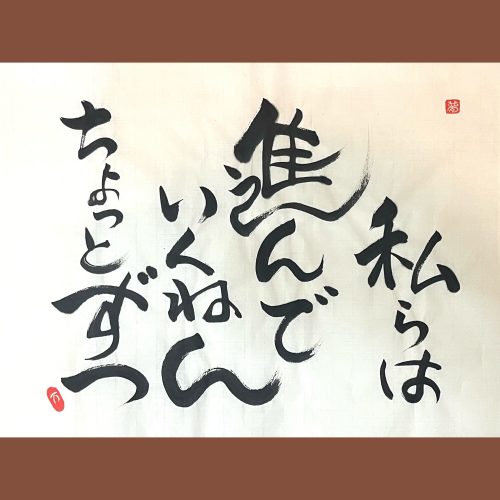 私らは
進んで
いくねん
ちょっとずつ